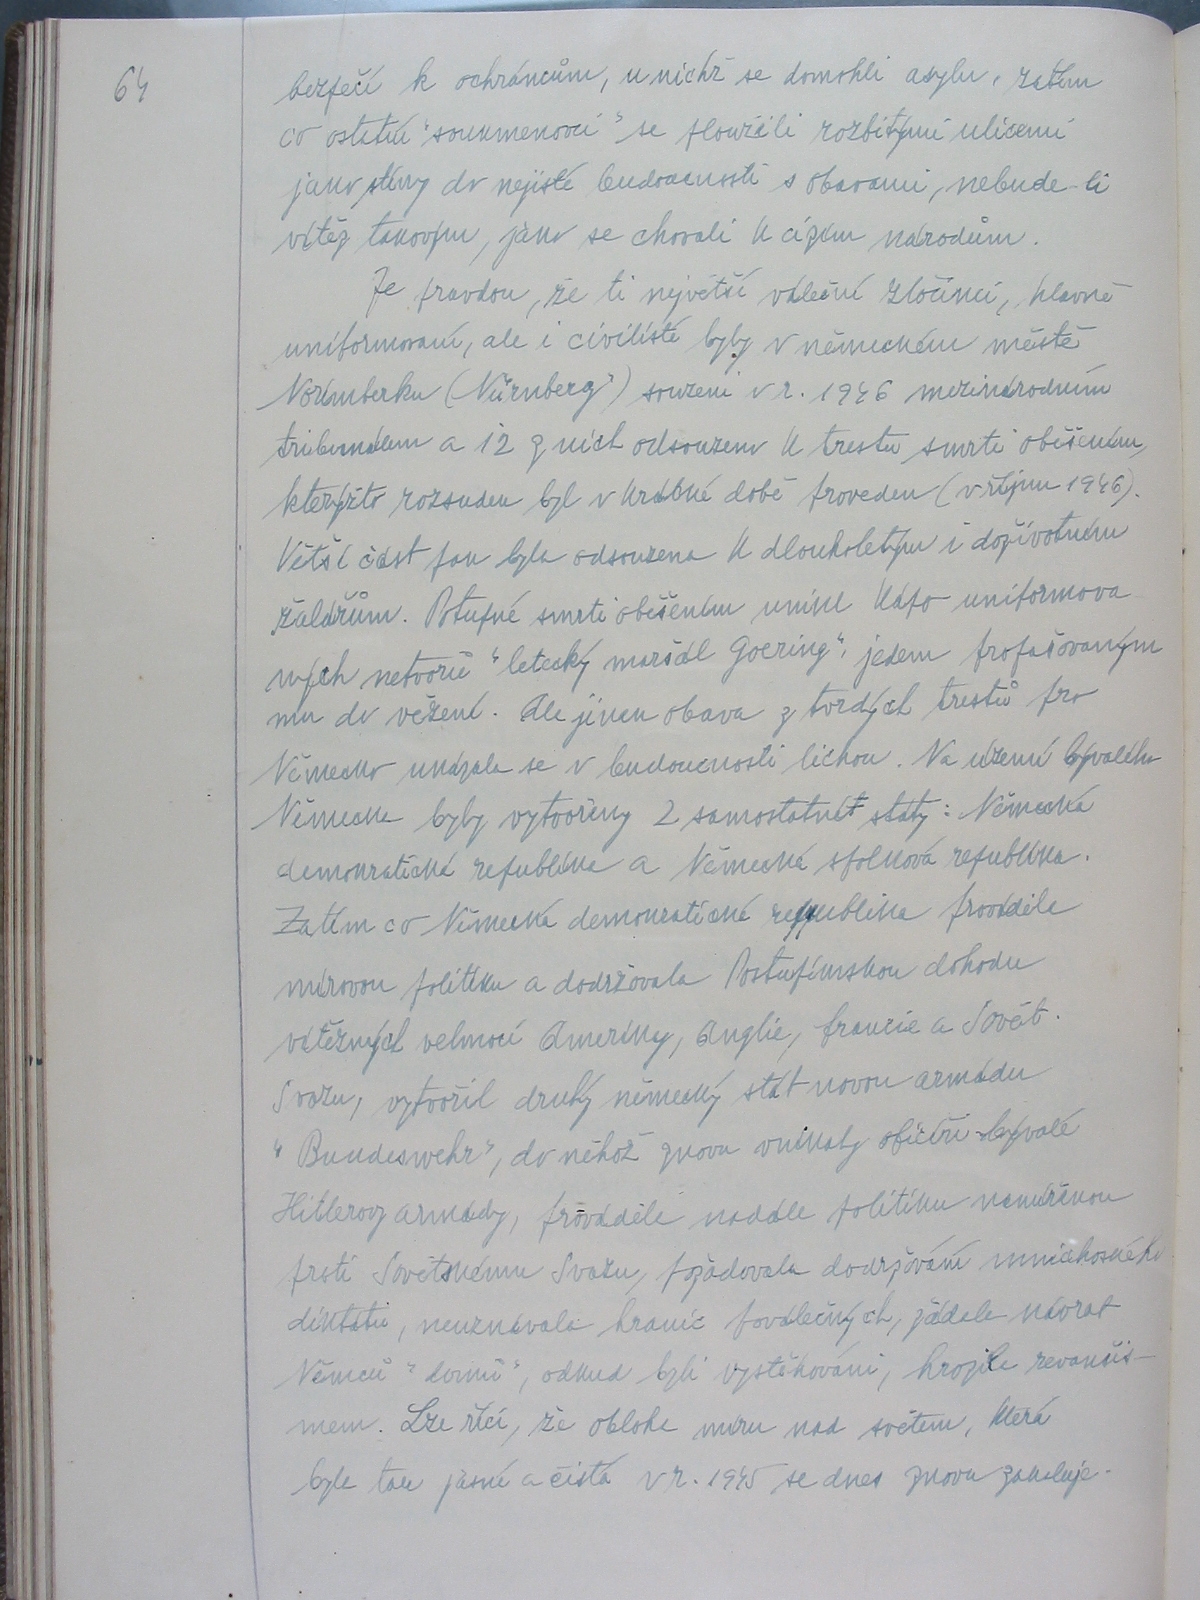 64
bezpečí k ochráncům, u nichž se domohli asylu, zatím
co ostatní "soukmenovci" se ploužili rozbitými ulicemi
jako stíny do nejisté budoucnosti s obavami, nebude-li
vítěz takovým, jako se chovali k cizím národům.
Je pravdou, že ti největší váleční zločinci, hlavně
uniformovaní, ale i civilisté byly v německém městě
Norimberku (Nürnberg") souzeni v r. 1946 mezinárodním
tribunálem a 12 z nich odsouzeno k trestu smrti oběšením,
kterýžto rozsudek byl v krátké době proveden (v říjnu 1946).
Větší část pak byla odsouzena k dlouholetým i doživotním
žalářům. Potupné smrti oběšením unikl kápo uniformova
ných netvorů "letecký maršál Goering", jedem propašovaným
mu do vězení. Ale jinak obava z tvrdých trestů pro
Německo ukázala se v budoucnosti lichou. Na území bývalého
Německa byly vytvořeny 2 samostatné státy: Německá
demokratická republika a Německá spolková republika.
Zatím co Německá demokratická republika prováděla
mírovou politiku a dodržovala Postupimskou dohodu
vítězných velmocí Ameriky, Anglie, Francie a Sovět.
Svazu, vytvořil druhý německý stát novou armádu
"Bundeswehr", do něhož znovu vnikaly oficíři bývalé
Hitlerovy armády, prováděli nadále politiku namířenou
proti Sovětskému Svazu, požadovala dodržování mnichovského
diktátu, neuznávala hranic poválečných, žádala návrat
Němců "domů", odkud byli vystěhováni, hrozila revanšis-
mem. Lze říci, že obloha míru nad světem, která
byla tak jasná a čistá v r. 1945 se dnes znovu zakaluje.